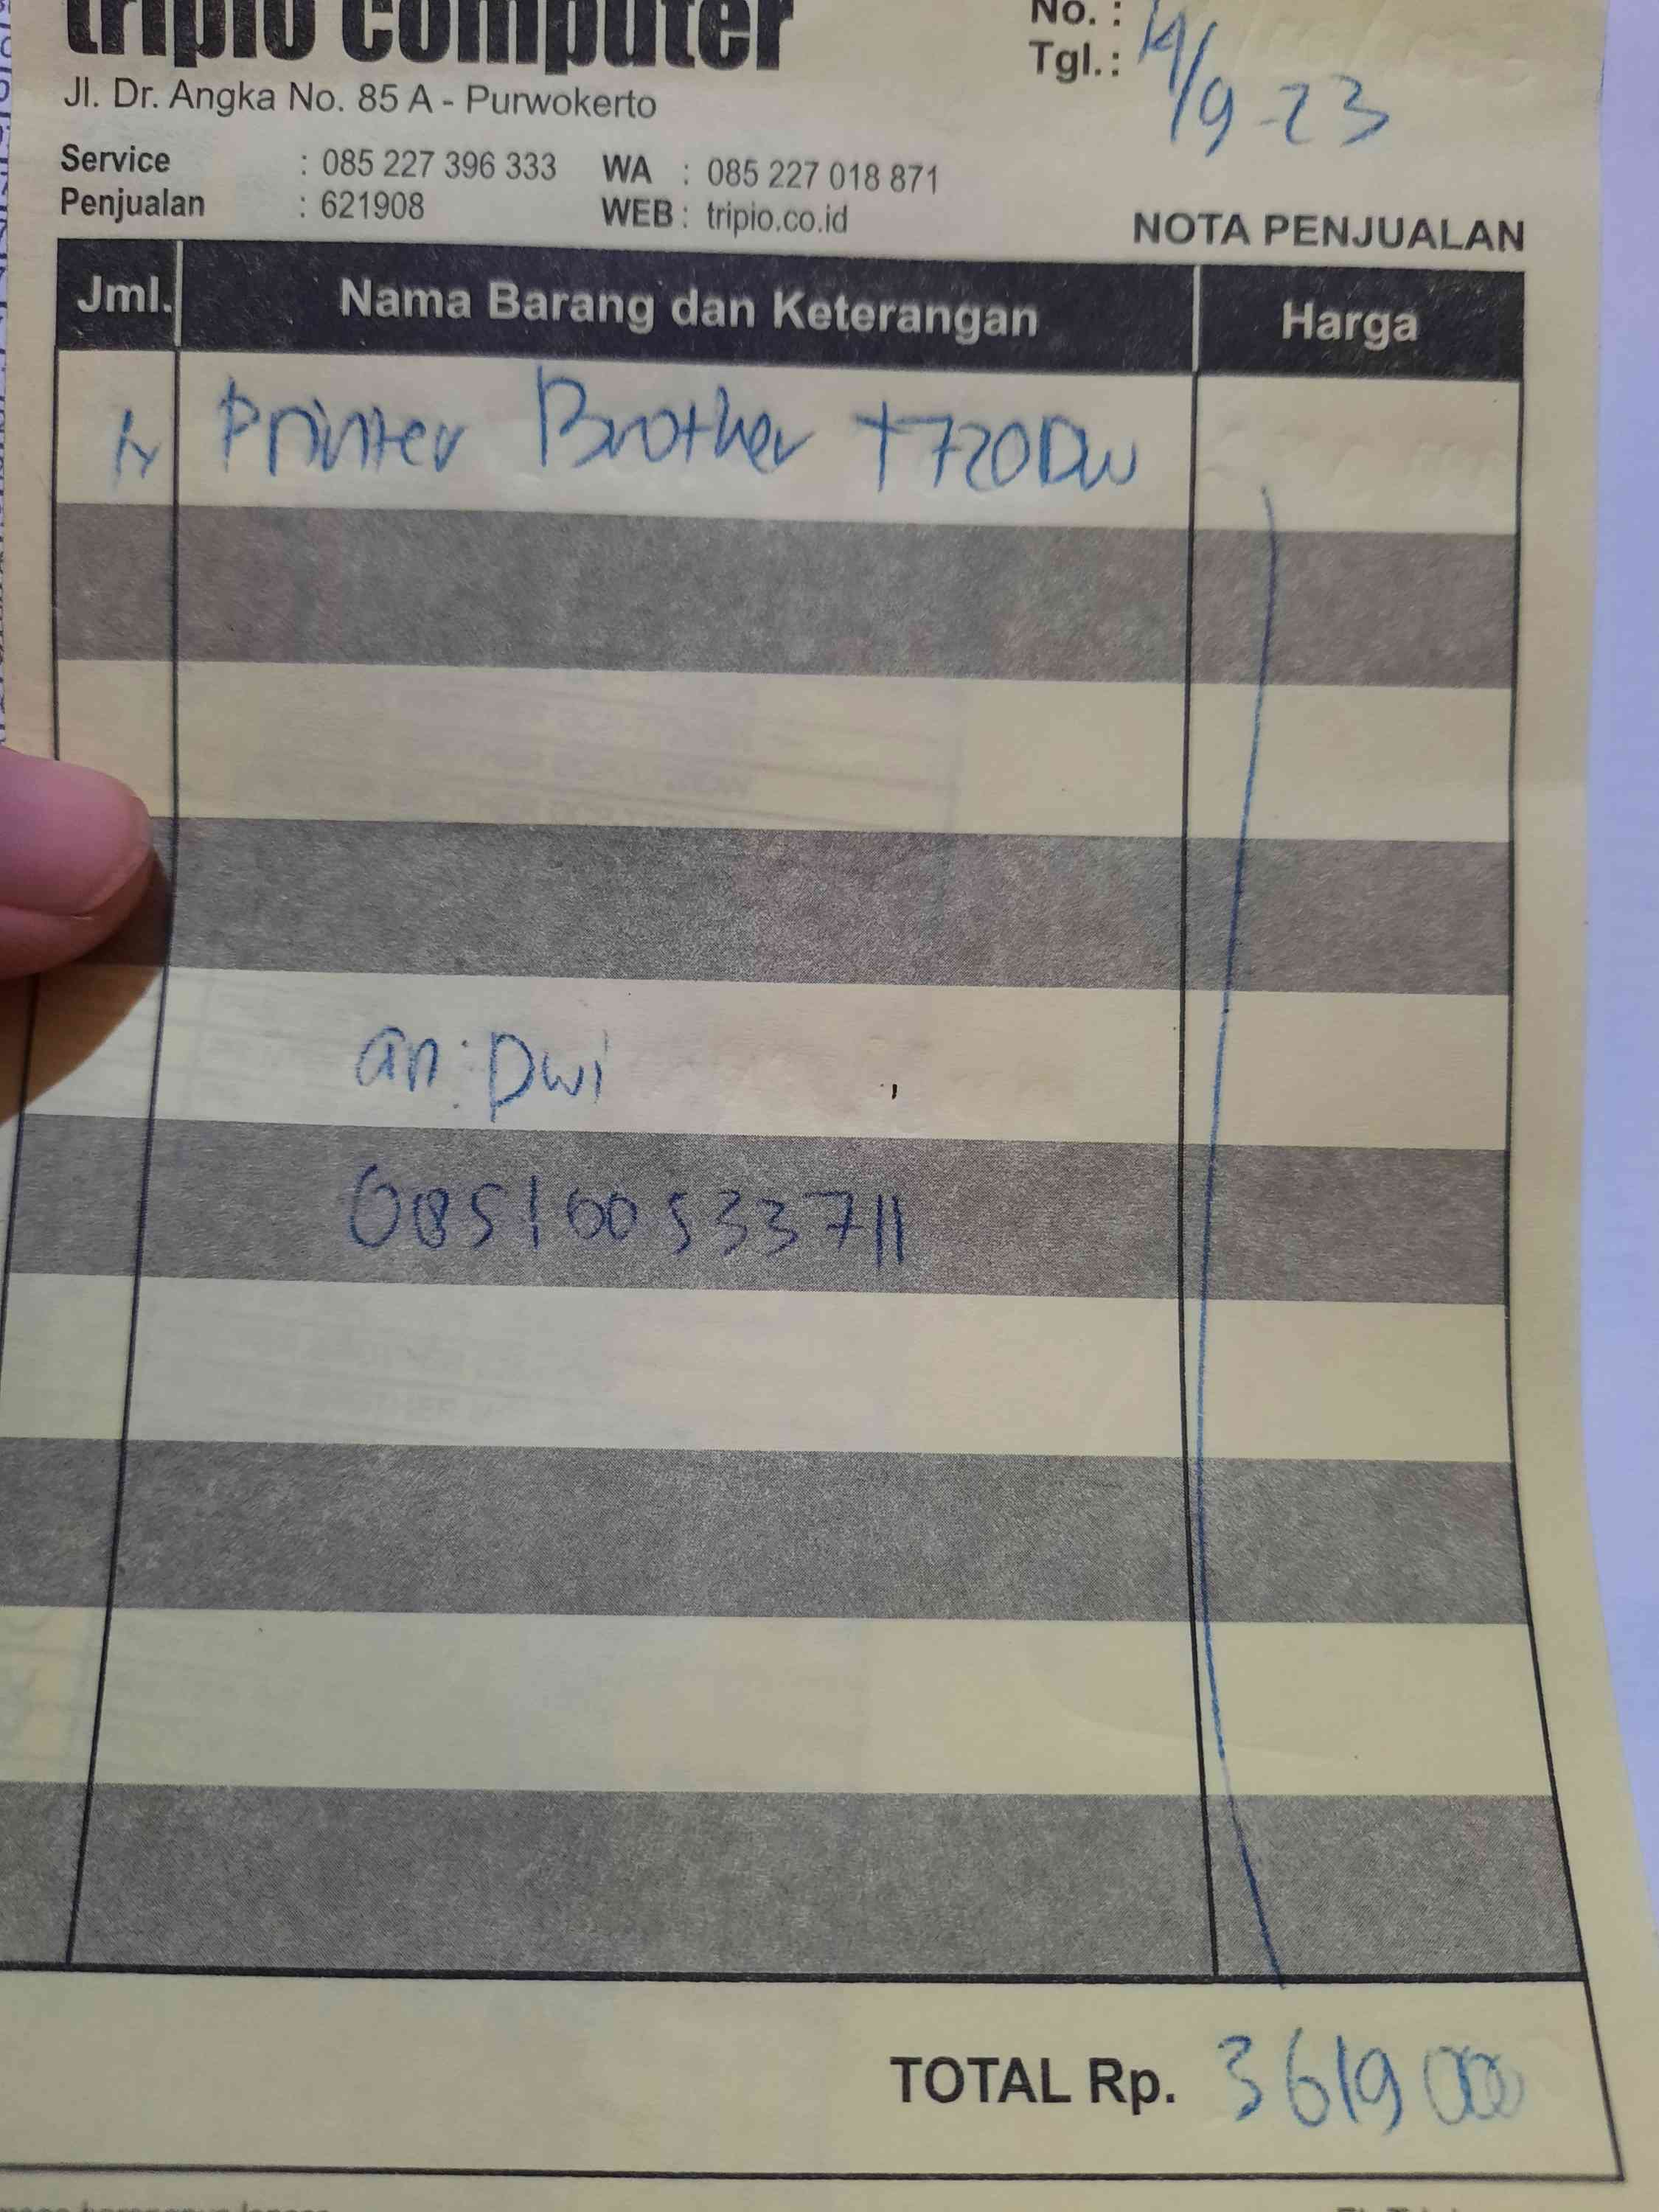 tripio computer
Jl. Dr. Angka No. 85 A - Purwokerto
No. :
Tgl. : 14/9-23
Service : 085 227 396 333 WA : 085 227 018 871
Penjualan : 621908 WEB : tripio.co.id
NOTA PENJUALAN
Jml. Nama Barang dan Keterangan Harga
1 Printer Brother T720DW
an: Dwi
085100533711
TOTAL Rp. 3619000